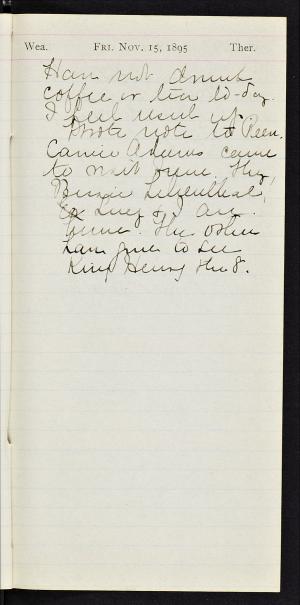 Wea. FRI. NOV. 15, 1895 Ther.
Have not drunk
coffee or tea to-day.
I feel result of
Wrote note to Peen.
Carrie Adams came
to visit June. They,
Bessie
Lucy & I are
home. The other
have gone to see
King Henry the 8.